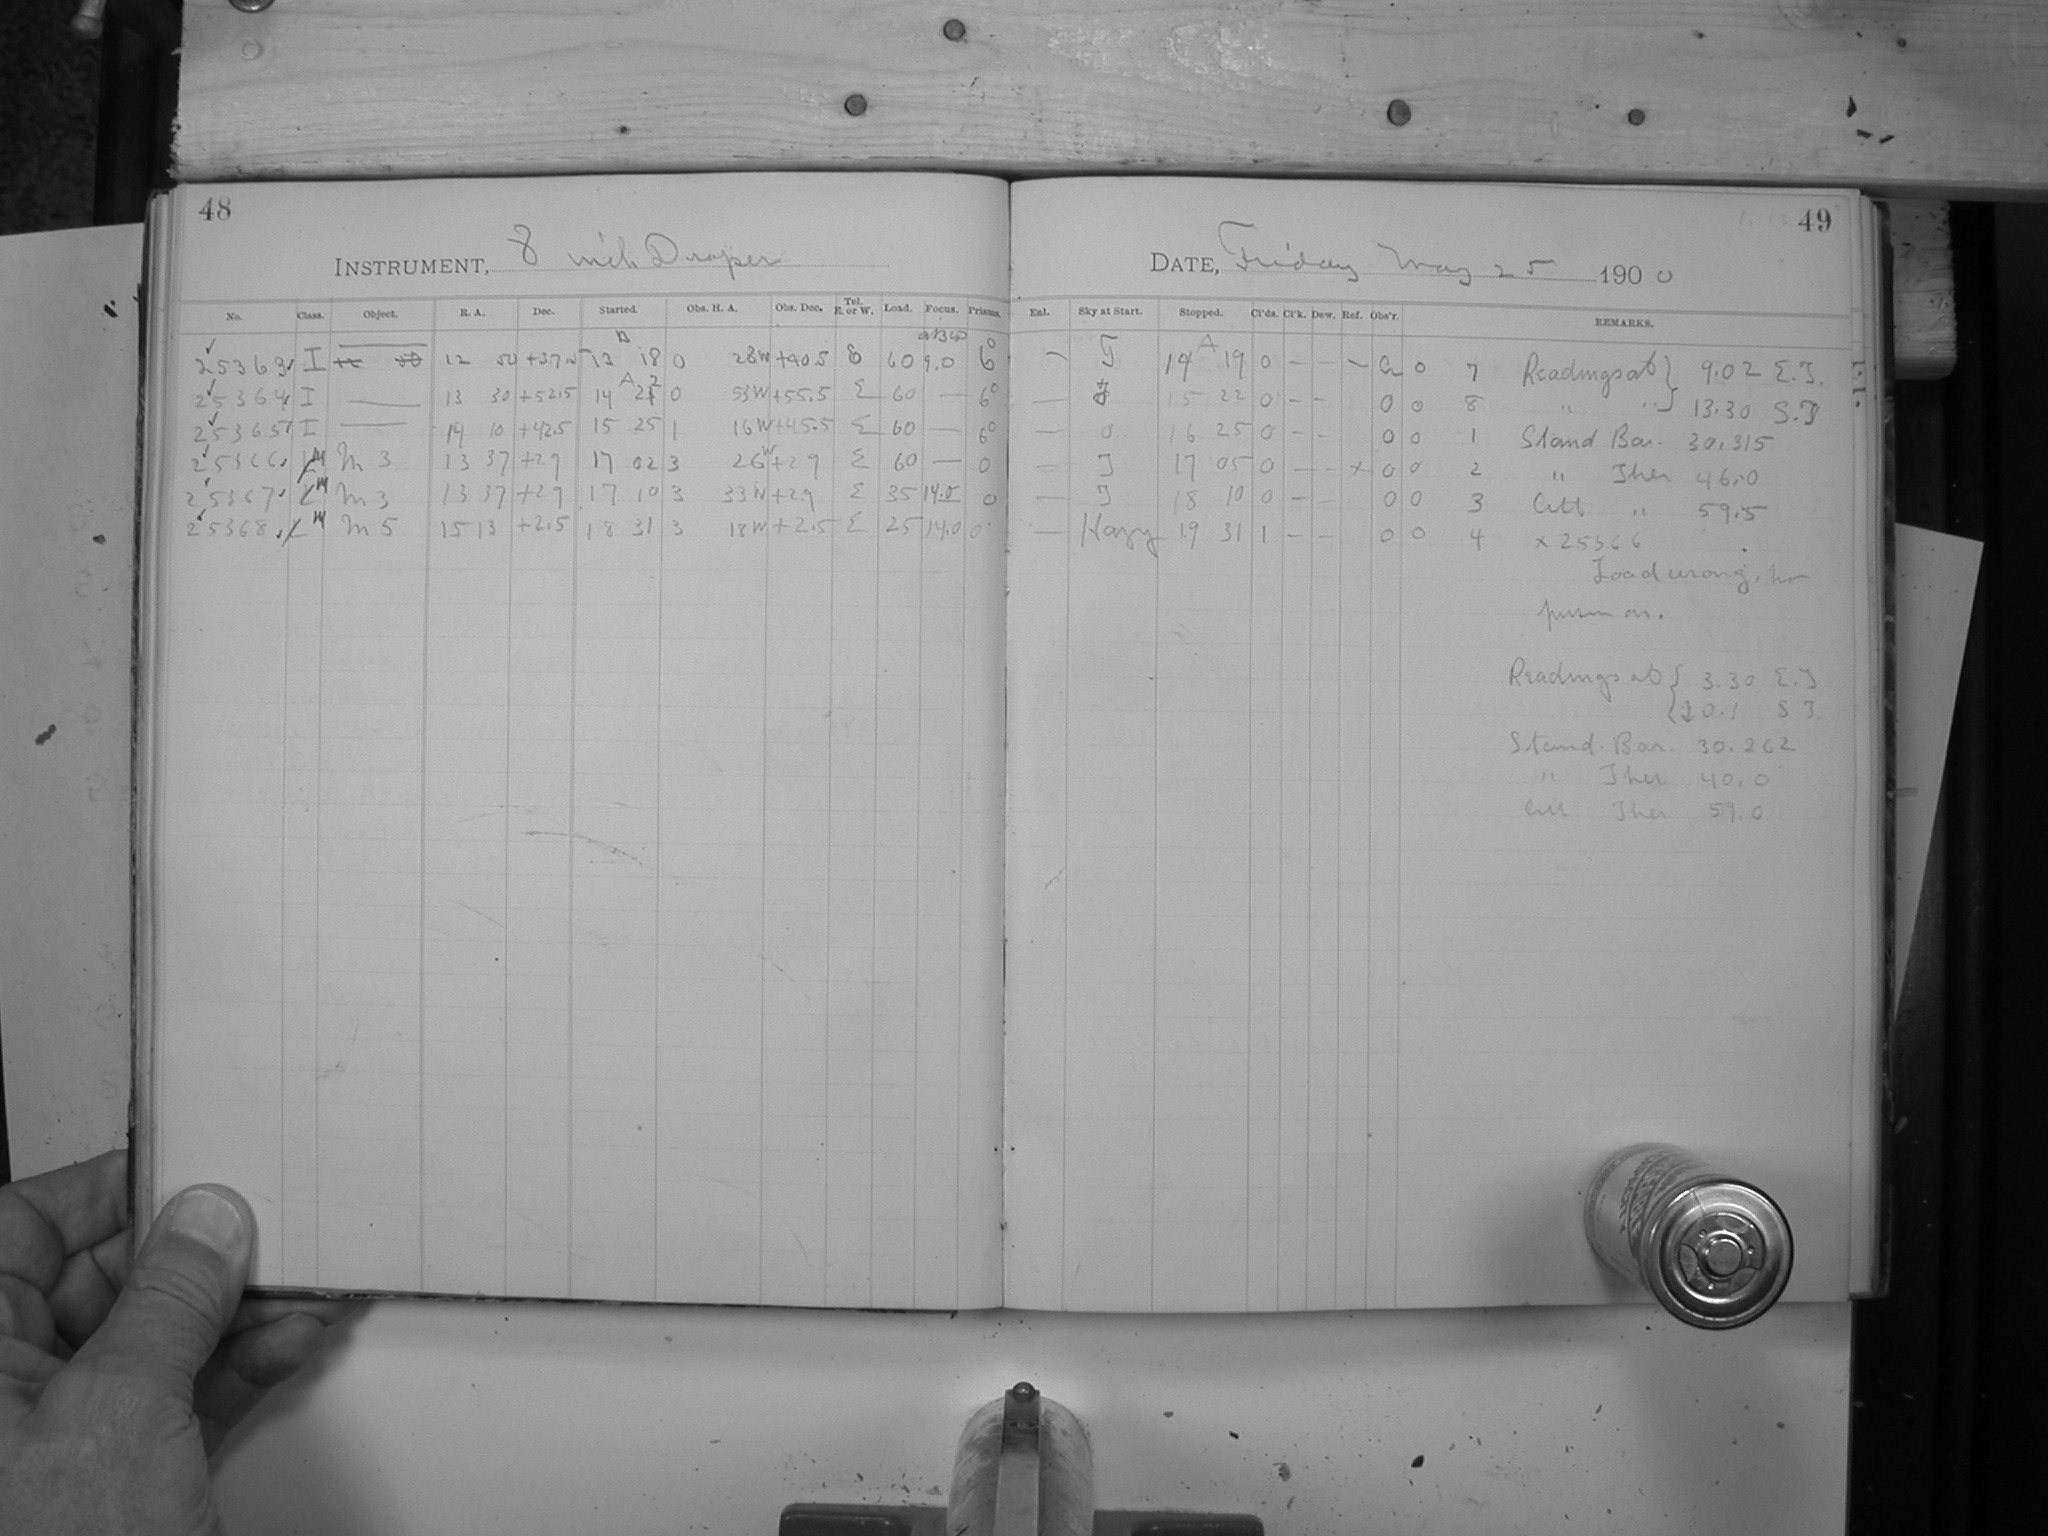 48
INSTRUMENT, 8 inch Draper
No. Class. Object. R. A. Dec. Started. Obs. H. A. Obs. Dec. Tel. E. or W. Load. Focus. Prisms.
25363 I 12 50 +37.5 13 18 0 28W +40.5 E 60 9.0 6°
25364 I —— 13 30 +52.5 14 22 0 53W +55.5 E 60 — 6°
25365 I —— 14 10 +42.5 15 25 1 16W +45.5 E 60 — 6°
25366 M M 3 13 37 +29 17 02 3 26W +29 E 60 — 0
25367 M M 3 13 37 +29 17 10 3 33W +29 E 35 14.0 0
25368 M M 5 15 13 +2.5 18 31 3 18W +2.5 E 25 14.0 0
49
DATE, Friday May 25 1900
Enl. Sky at Start. Stopped. Cl'ds. Cl'k. Dew. Ref. Obs'r. REMARKS.
— 14 A 19 0 — — — 0 7 Readings at } 9.02 E.T.
— 15 22 0 — — 0 0 8 " " } 13.30 S.T
— 16 25 0 — — 0 0 1 Stand Bar. 30.315
— 17 05 0 — — x 0 0 2 " Ther 46.0
— 18 10 0 — — 0 0 3 Att " 59.5
— Hazy 19 31 1 — — 0 0 4 x 25366
Load wrong, no
prism on.
Readings at { 3.30 E.T
{ 20.1 S T
Stand. Bar. 30.262
" Ther 40.0
Att Ther 59.0